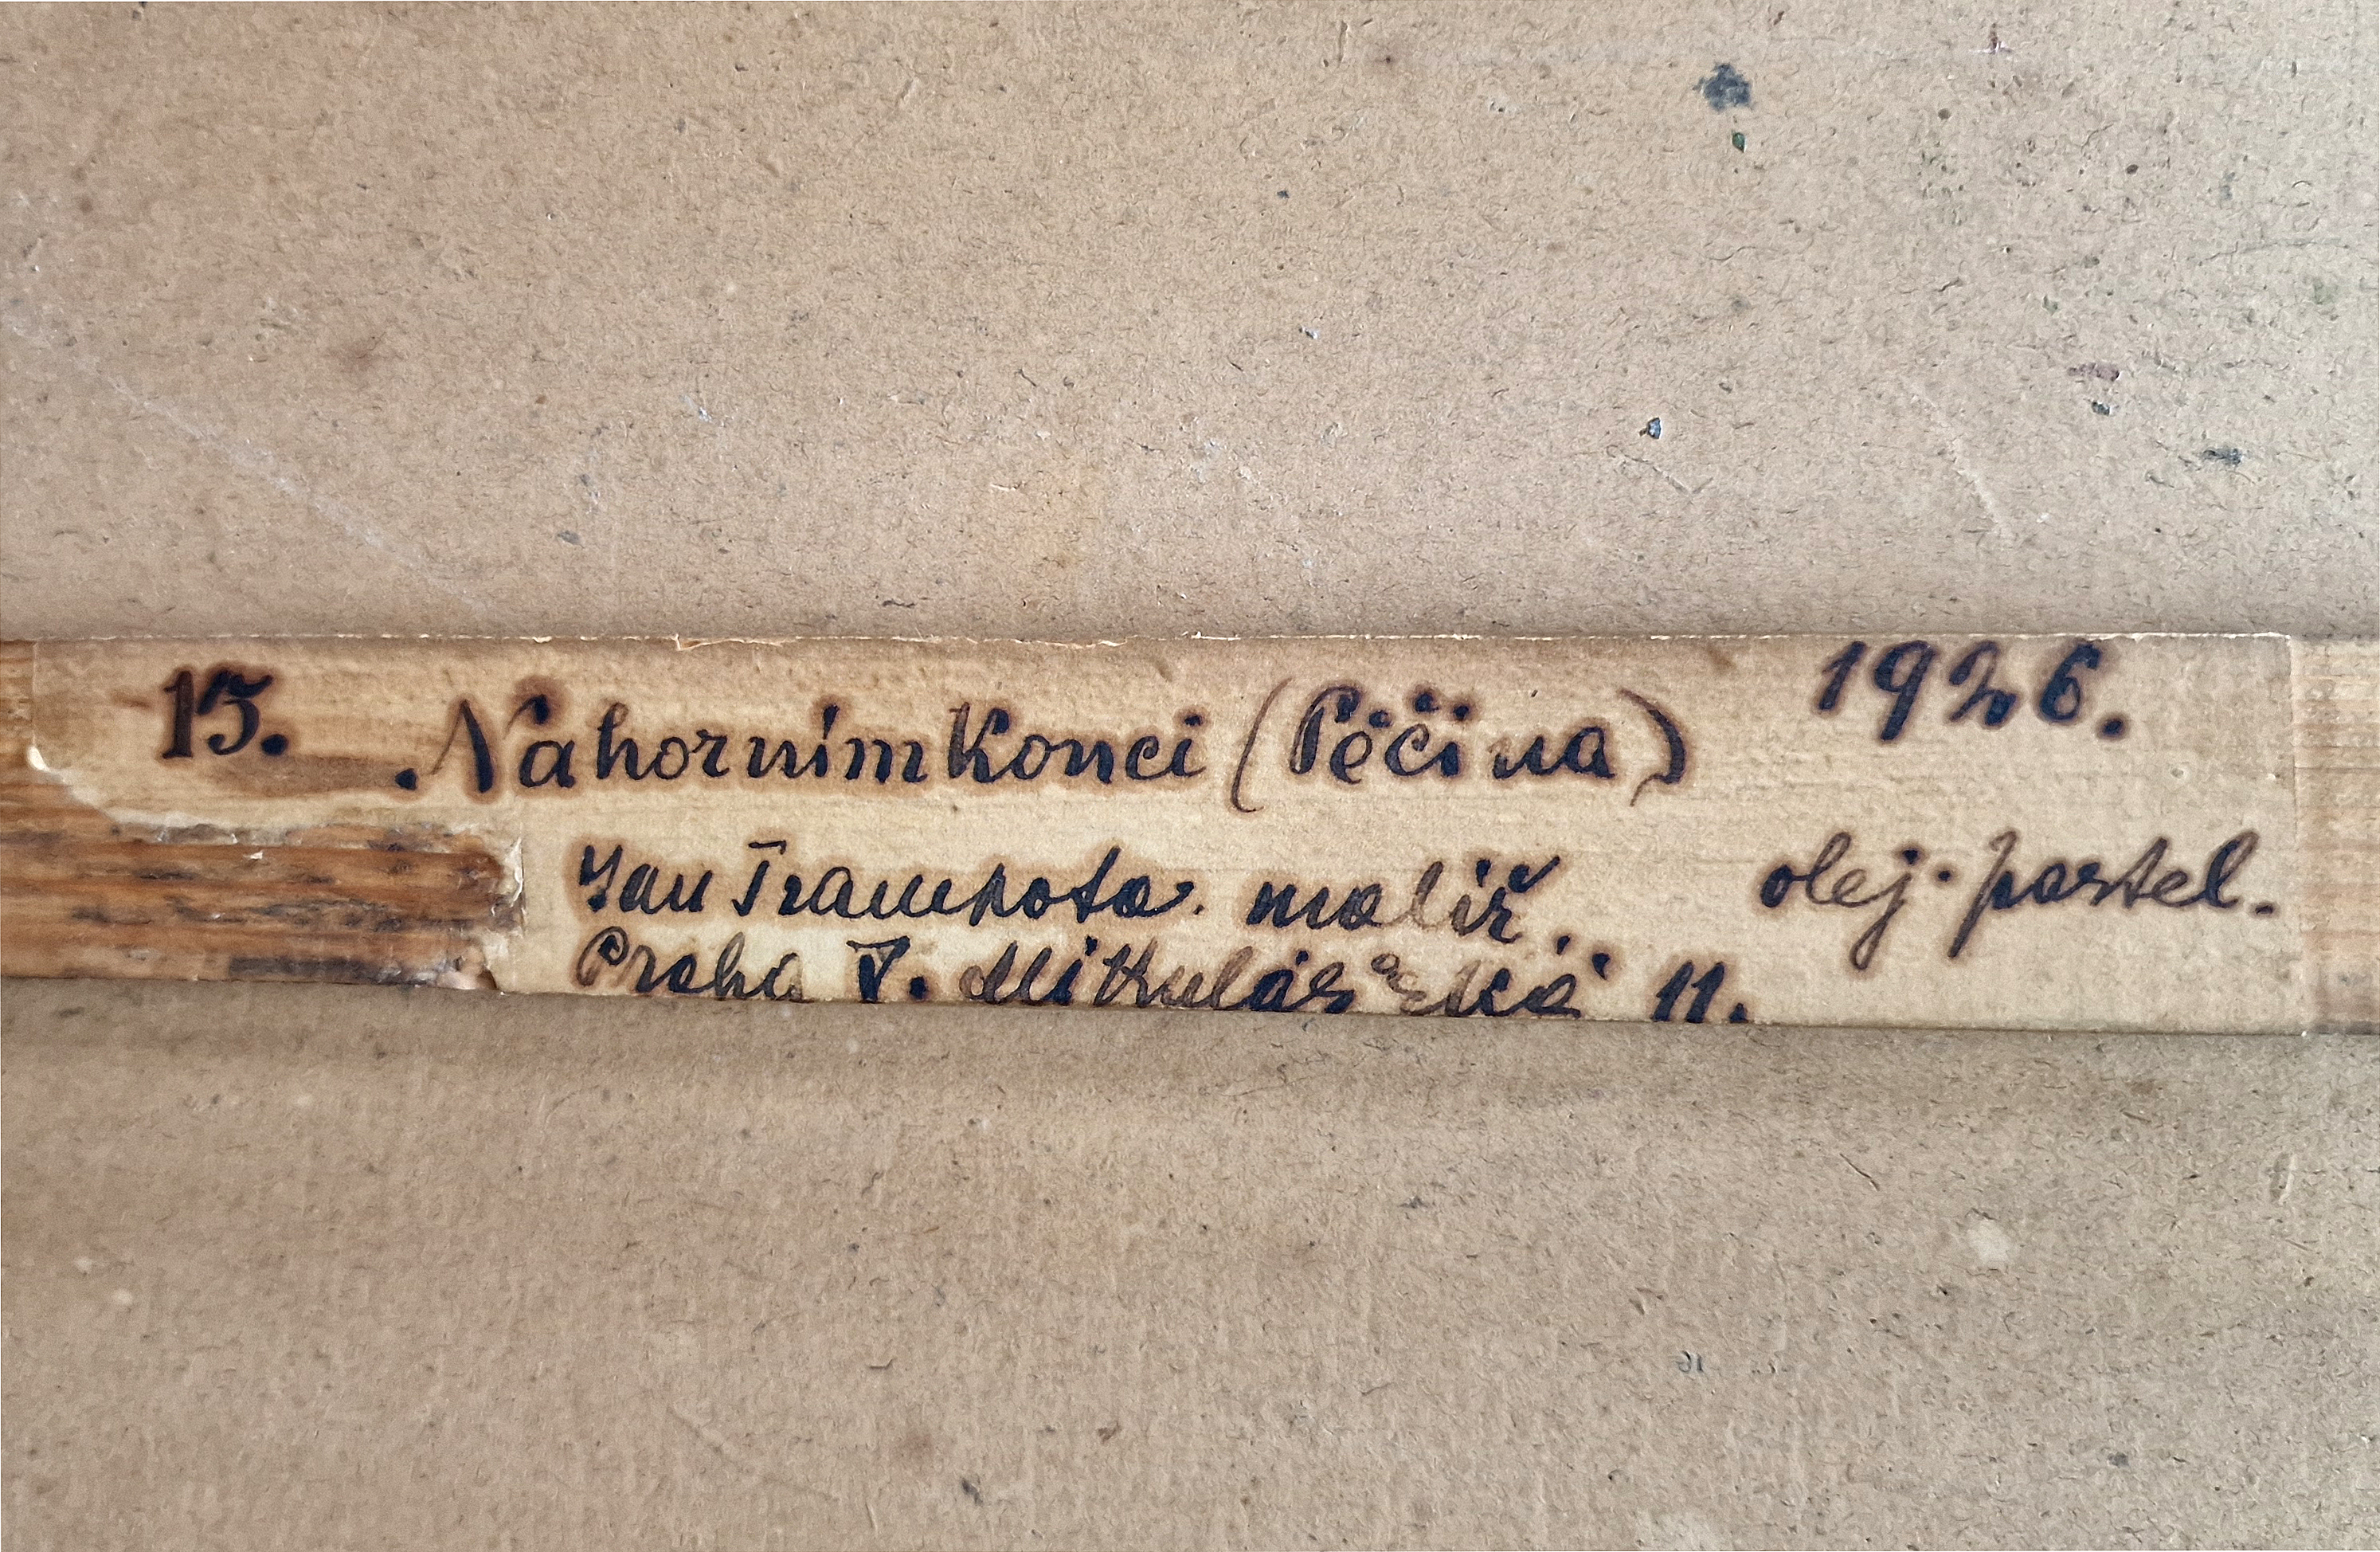 15. Na horním Konci (Pěčina) 1926.
Jan Trampota. malíř. olej. pastel.
Praha V. Mikulášská 11.